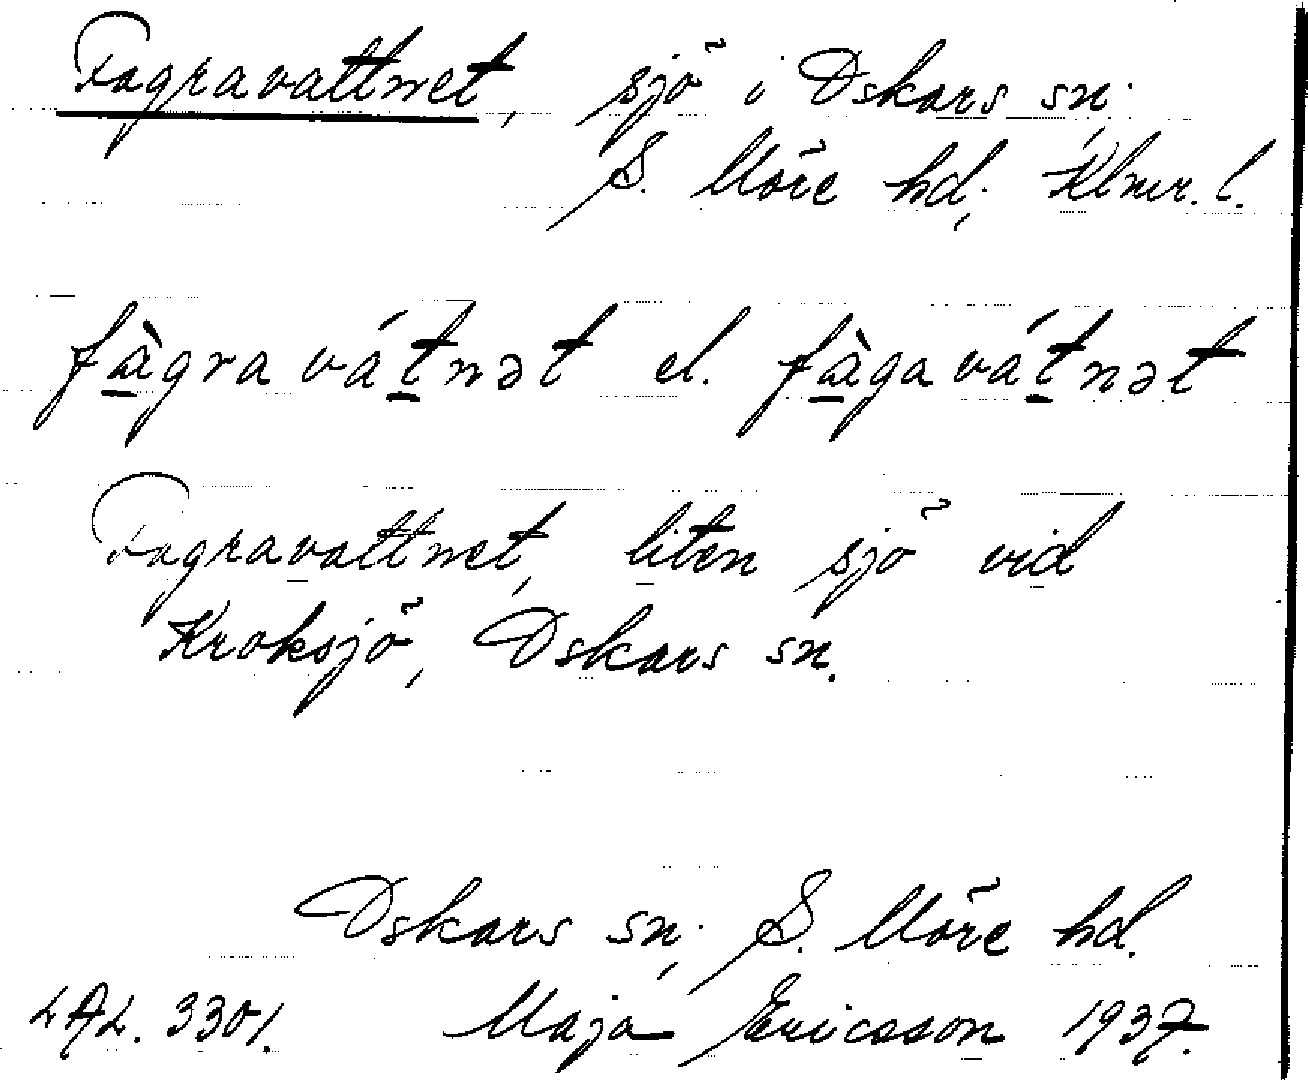 Fagravattnet, sjö i Oskars sn,
S. Möre hd, Klmr. l.
fàgra vátnət el. fàga vátnət
Fagravattnet, liten sjö vid
Kroksjö, Oskars sn.
Oskars sn, S. Möre hd.
LAL. 3301. Maja Ericsson 1937.